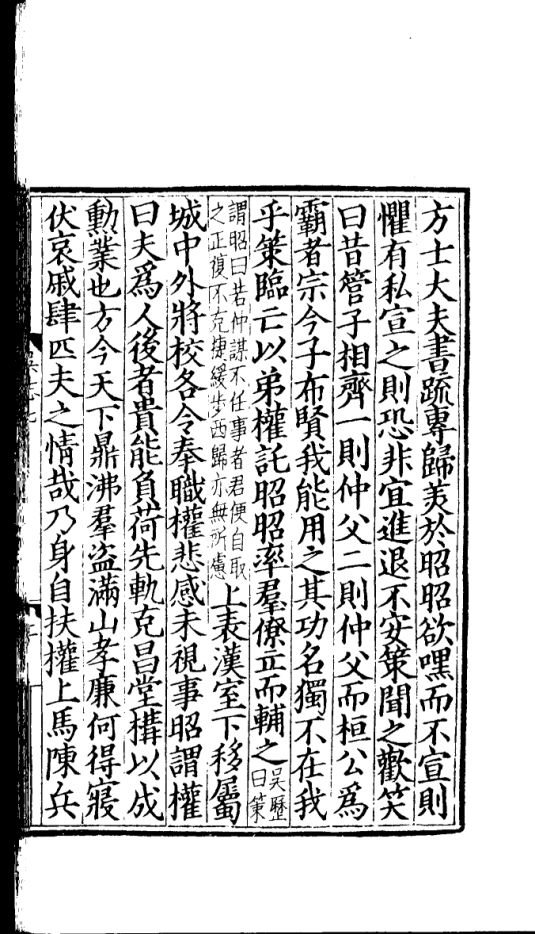 方士大夫書疏專歸美於昭昭欲嘿而不宣則
懼有私宣之則恐非宜進退不安策聞之歡笑
曰昔管子相齊一則仲父二則仲父而桓公爲
霸者宗今子布賢我能用之其功名獨不在我
乎策臨亡以弟權託昭昭率羣僚立而輔之吳歷曰策
謂昭曰若仲謀不任事者君便自取
之正復不克捷緩步西歸亦無所慮
上表漢室下移屬
城中外將校各令奉職權悲感未視事昭謂權
曰夫爲人後者貴能負荷先軌克昌堂構以成
勲業也方今天下鼎沸羣盗滿山孝廉何得寢
伏哀戚肆匹夫之情哉乃身自扶權上馬陳兵